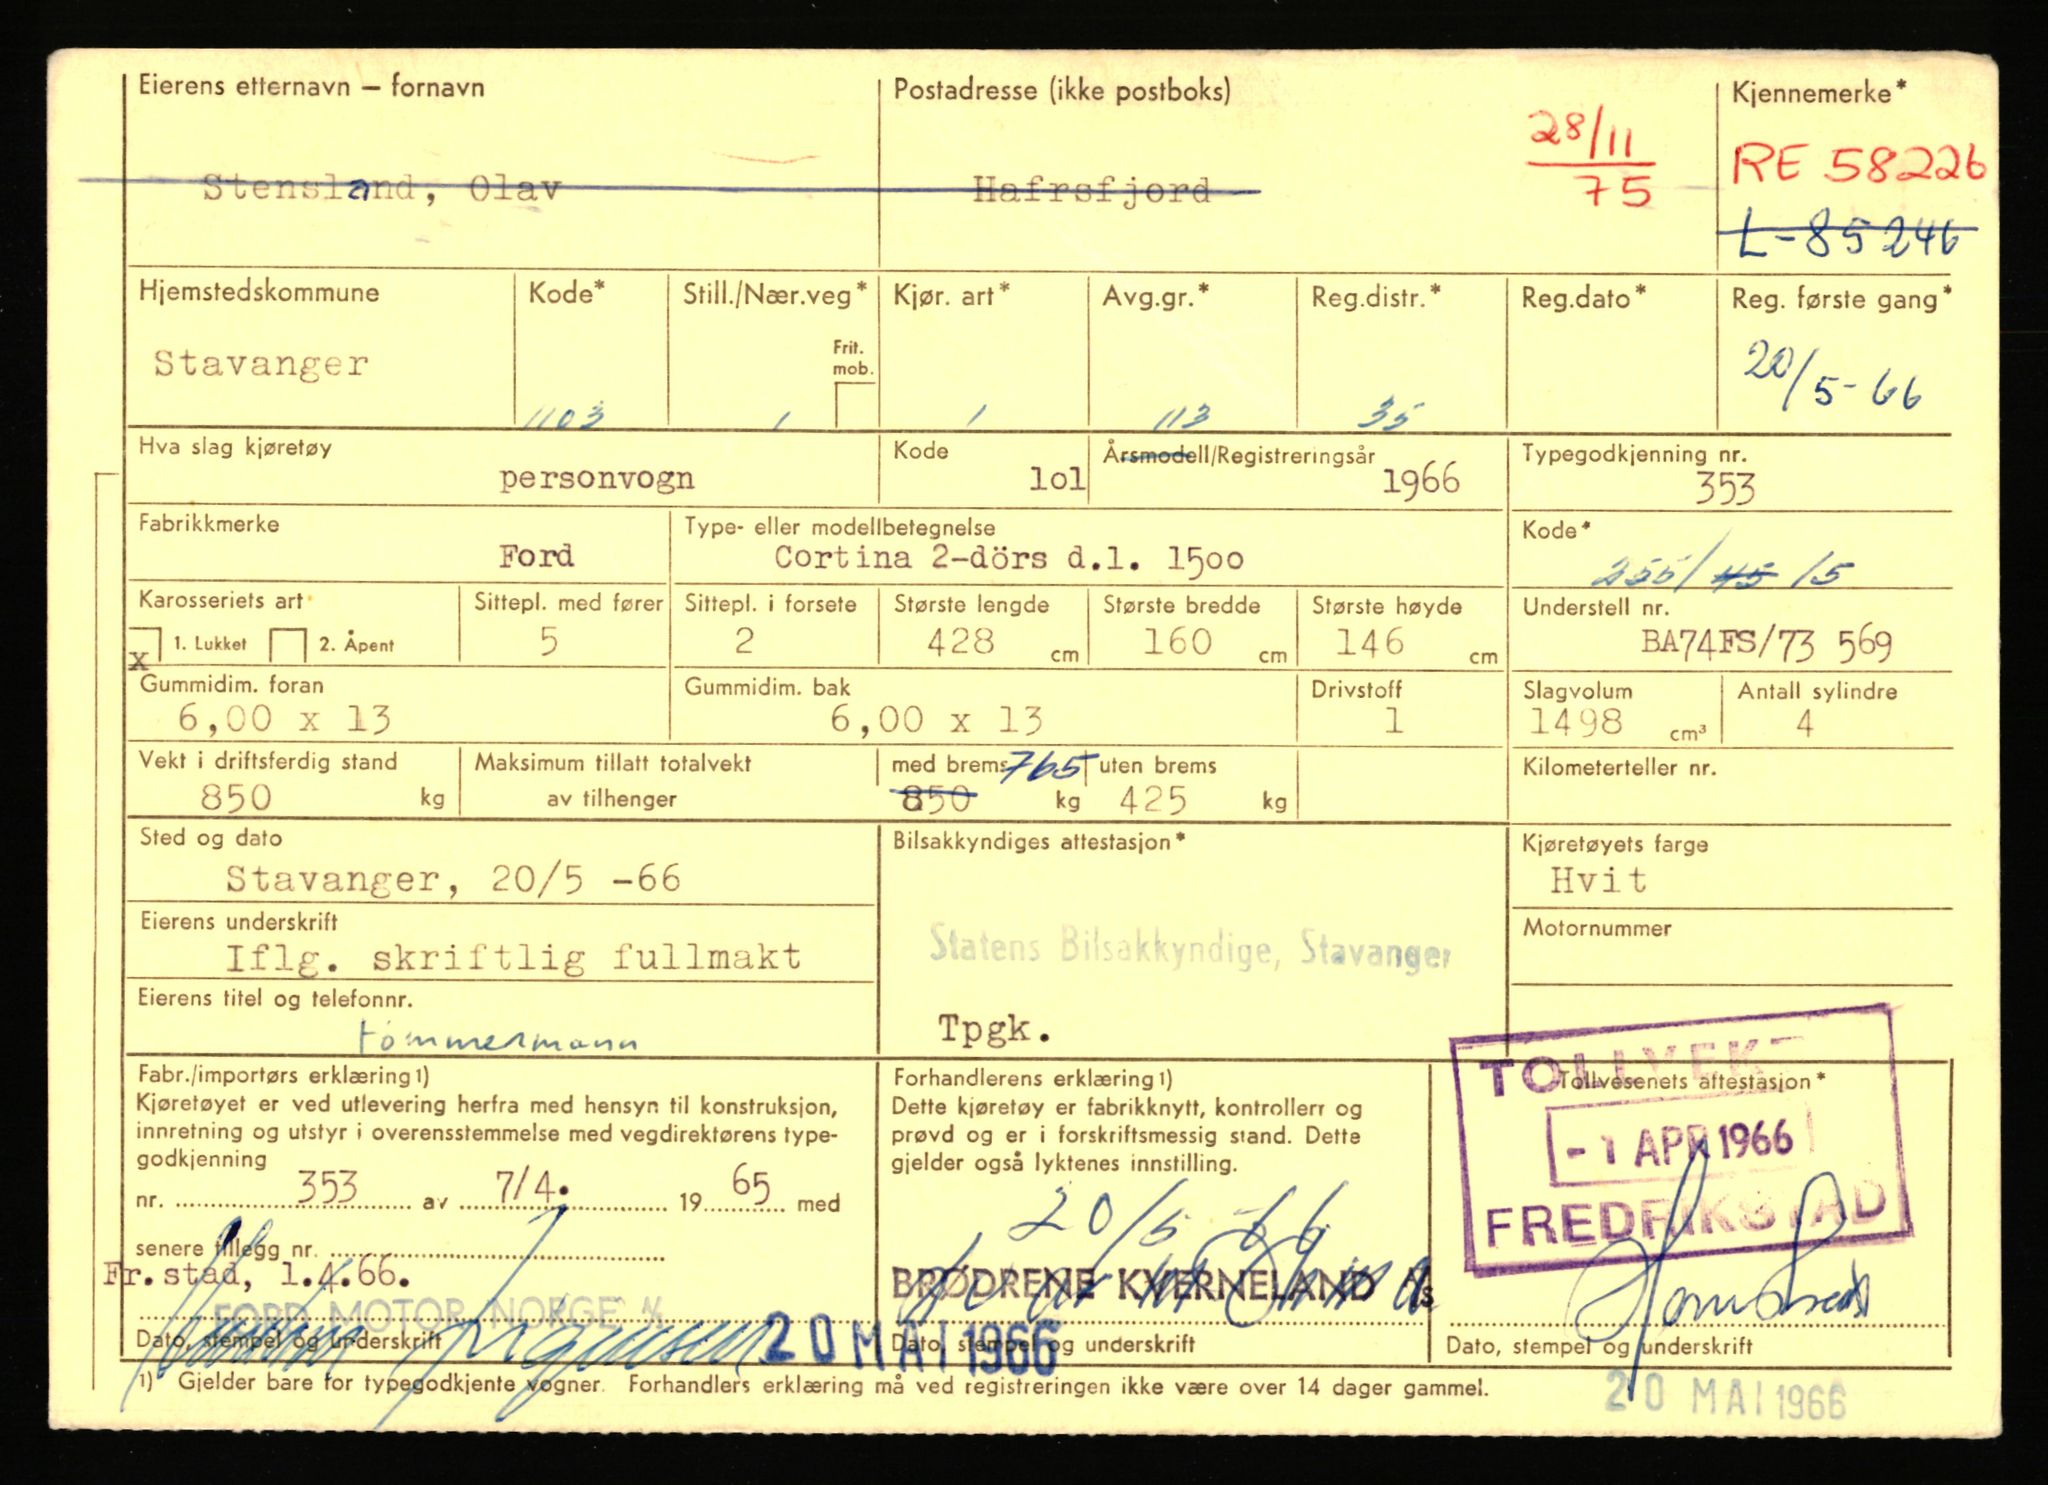 Eierens etternavn — fornavn
Postadresse (ikke postboks)
Kjennemerke*
28/11
75
RE 58226
Stensland, Olav
Hafrsfjord
L-85246
Hjemstedskommune
Kode*
Still./Nær.veg*
Kjør. art*
Avg.gr.*
Reg.distr.*
Reg.dato*
Reg. første gang*
Stavanger
Frit.
mob.
1103
1
1
113
35
20/5-66
Hva slag kjøretøy
Kode
Årsmodell/Registreringsår
Typegodkjenning nr.
personvogn
lol
1966
353
Fabrikkmerke
Type- eller modellbetegnelse
Kode*
Ford
Cortina 2-dörs d.l. 15oo
255/ 45 /5
Karosseriets art
Sittepl. med fører
Sittepl. i forsete
Største lengde
Største bredde
Største høyde
Understell nr.
x 1. Lukket 2. Åpent
5
2
428 cm
160 cm
146 cm
BA74FS/73 569
Gummidim. foran
Gummidim. bak
Drivstoff
Slagvolum
Antall sylindre
6,00 x 13
6,00 x 13
1
1498 cm³
4
Vekt i driftsferdig stand
Maksimum tillatt totalvekt
med brems 765
uten brems
Kilometerteller nr.
850 kg
av tilhenger
850 kg
425 kg
Sted og dato
Bilsakkyndiges attestasjon*
Kjøretøyets farge
Stavanger, 20/5 -66
Hvit
Eierens underskrift
Motornummer
Iflg. skriftlig fullmakt
Statens Bilsakkyndige, Stavanger
Eierens titel og telefonnr.
tømmermann
Tpgk.
Fabr./importørs erklæring1)
Forhandlerens erklæring1)
Tollvesenets attestasjon*
Kjøretøyet er ved utlevering herfra med hensyn til konstruksjon,
innretning og utstyr i overensstemmelse med vegdirektørens type-
godkjenning
nr. 353 av 7/4. 19 65 med
senere tillegg nr.
Fr.stad, 1.4.66.
FORD MOTOR NORGE A/S
Dato, stempel og underskrift
Dette kjøretøy er fabrikknytt, kontrollert og
prøvd og er i forskriftsmessig stand. Dette
gjelder også lyktenes innstilling.
20/5-66
BRØDRENE KVERNELAND A/S
20 MAI 1966
Dato, stempel og underskrift
- 1 APR 1966
FREDRIKSTAD
Dato, stempel og underskrift
1) Gjelder bare for typegodkjente vogner. Forhandlers erklæring må ved registreringen ikke være over 14 dager gammel.
20 MAI 1966